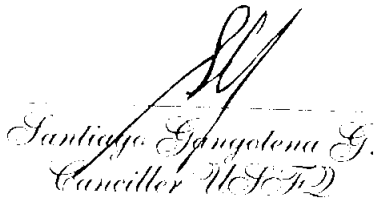 Santiago Gangotena G.
Canciller USFQ